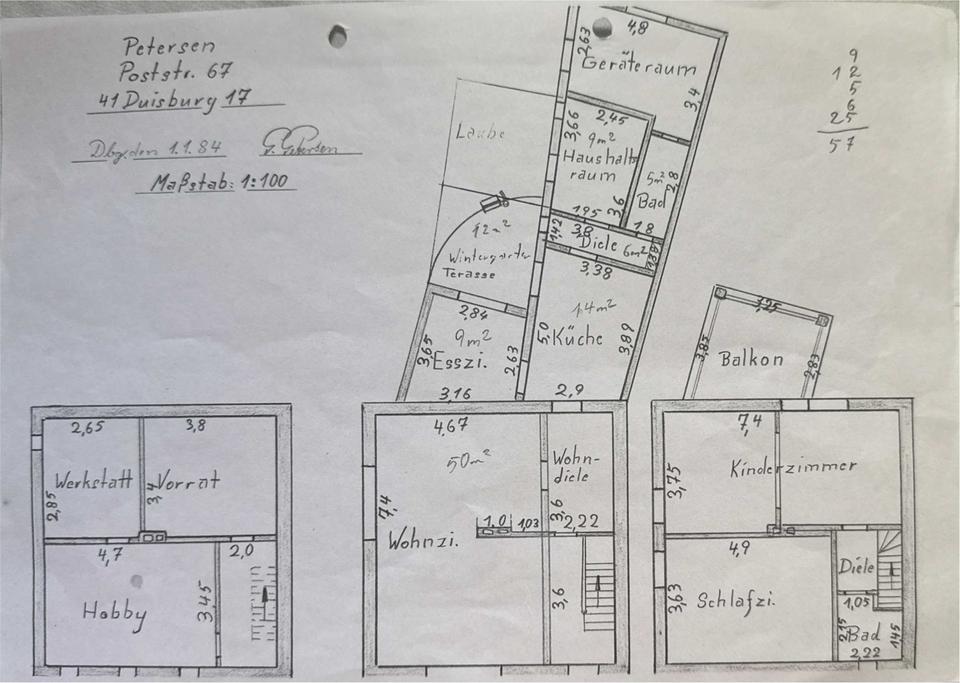 Petersen
Poststr. 67
41 Duisburg 17
Dbg. den 1.1.84 G. Petersen
Maßstab: 1:100
9
12
5
6
25
57
4,8
2,63
Geräteraum
3,4
2,45
3,66
9m²
Haushalts
raum
3,6
1,95
5m²
2,8
Bad
1,8
Laube
12m²
Wintergarten
Terasse
1,42
3,8
Diele 6m²
1,88
3,38
14m²
5,0
Küche
3,89
2,9
2,84
9m²
3,65
Esszi.
2,63
3,16
3,25
3,85
Balkon
2,83
2,65
3,8
Werkstatt
Vorrat
2,85
3,4
4,7
2,0
Hobby
3,45
4,67
50m²
7,4
Wohnzi.
Wohn-
diele
3,6
1,0
1,03
2,22
3,6
7,4
3,75
Kinderzimmer
4,9
3,63
Schlafzi.
Diele
1,05
2,15
Bad
1,45
2,22